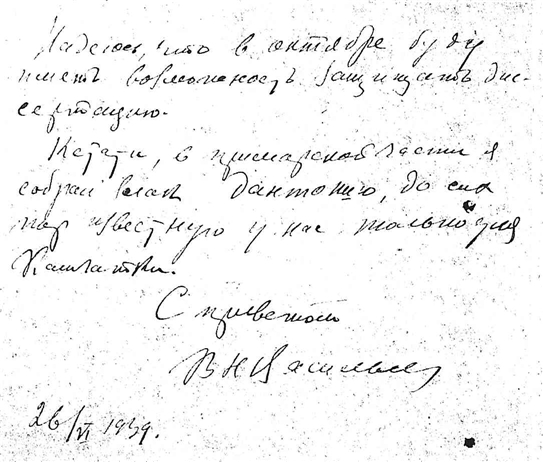 Надеюсь, что в октябре буду
иметь возможность защищать дис-
сертацию.
Кстати, в приморской части я
собрал злак Дантонию, до сих
пор известную у нас только для
Камчатки.
С приветом
В Н Васильев
26/VI 1939.